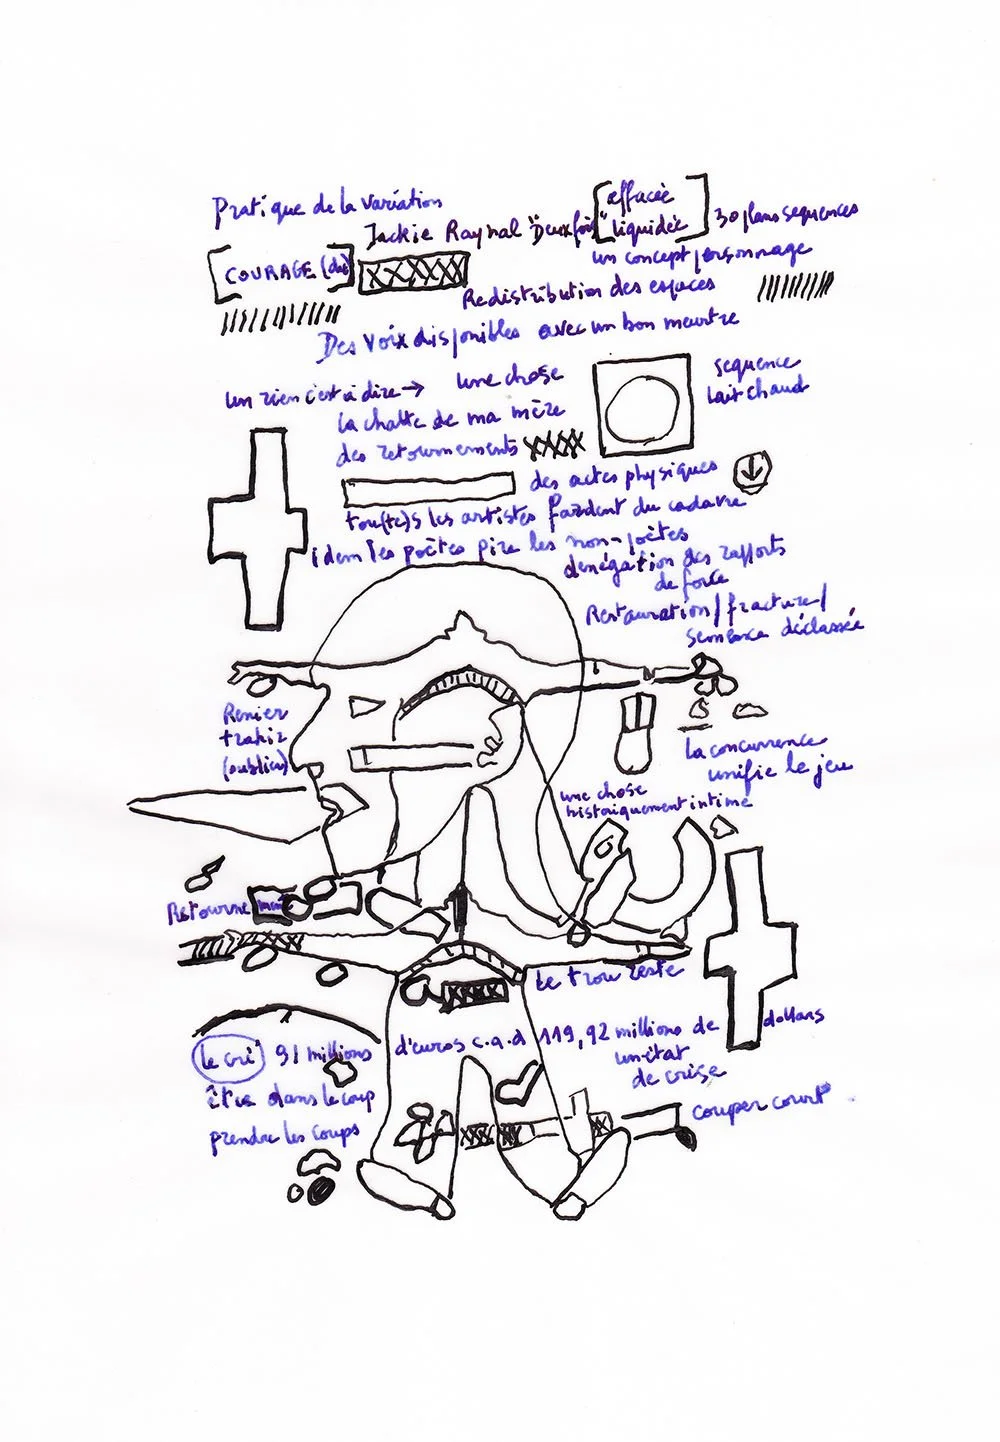 Pratique de la variation
Jackie Raynal "Deux fois"
[effacée
liquidée]
30 plans sequences
[COURAGE (du)]
un concept personnage
Redistribution des espaces
Des voix disponibles avec un bon meurtre
un rien c'est à dire → une chose
sequence
lait chaud
la chatte de ma mère
des retournements
des actes physiques
tou(te)s les artistes fardent du cadavre
idem les poètes pire les non-poètes
dénégation des rapports
de force
Restauration/fracture/
semence déclassée
Renier
trahir
(oublier)
la concurrence
unifie le jeu
une chose
historiquement intime
Retourne
Le trou reste
dollars
le cri 91 millions d'euros c.a.d 119,92 millions de
un état
de crise
être dans le coup
couper court
prendre les coups